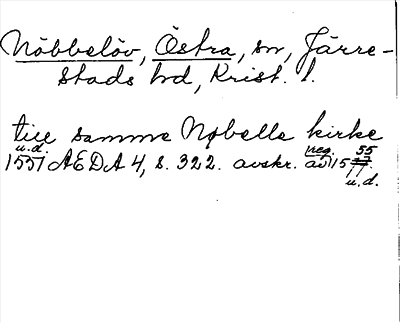 Nöbbelöv, Östra, sn, Järre-
stads hd, Krist. l.
till samme Nøbelle kirke
u.d. reg. 55
1551 AEDA 4, s. 322. avskr. av 15
u.d.